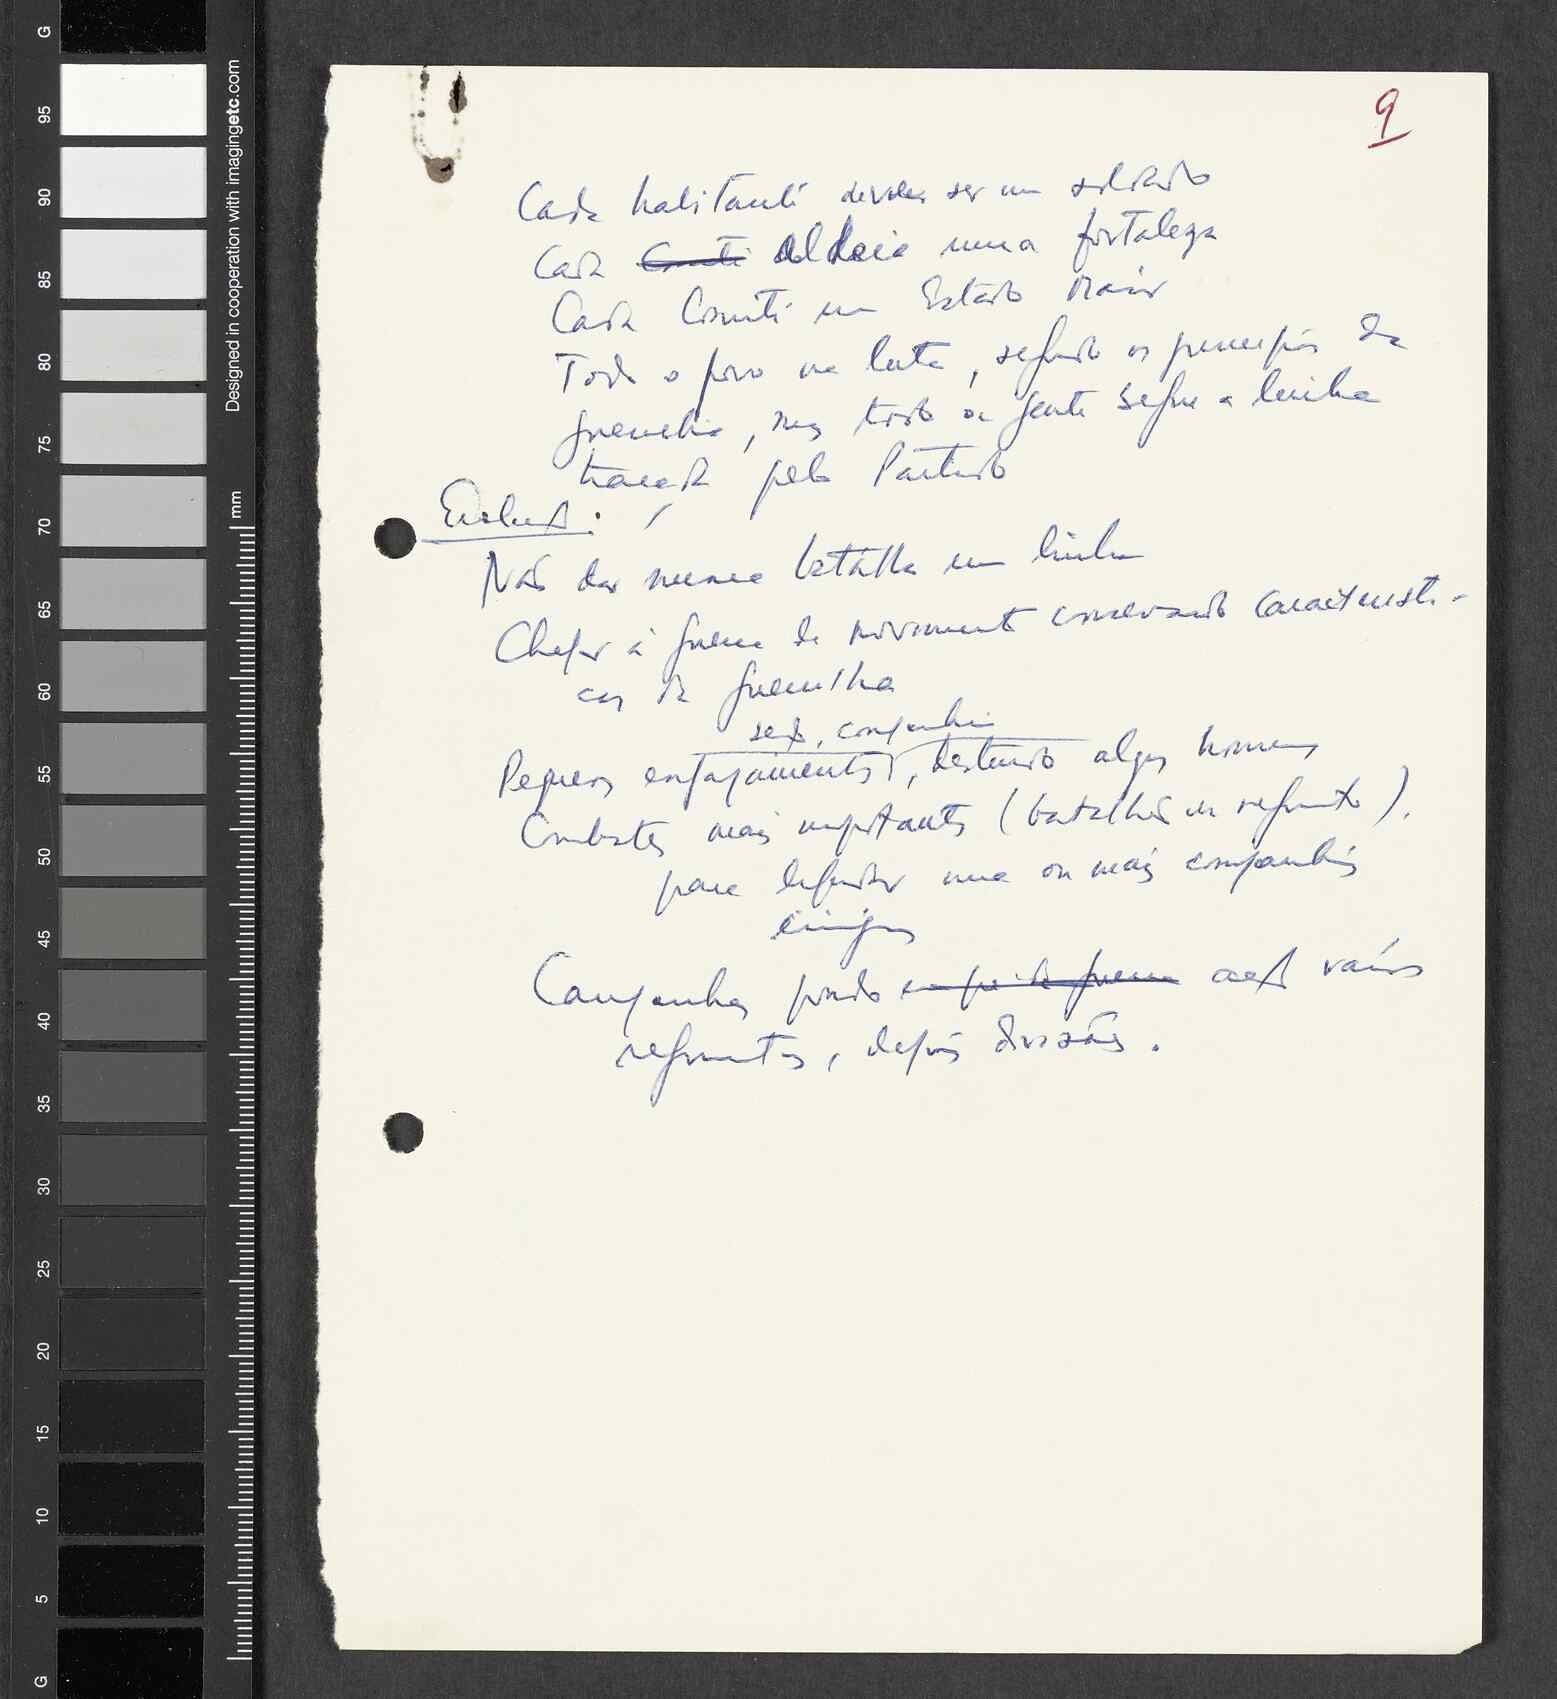 9
Cada habitante deverá ser um soldado
Cada Comité Aldeia uma fortaleza
Cada Comité um Estado Maior
Todo o povo na luta, segundo os princípios da
guerrilha, mas toda a gente segue a linha
traçada pelo Partido
Evolução:
Não dar nunca batalha em linha
Chegar à guerra de movimento conservando característi-
cas da guerrilha
secção, companhia
Pequenos engajamentos, destruindo alguns homens
Combates mais importantes (batalhão ou regimento).
para liquidar uma ou mais companhias
inimigas
Campanhas pondo em acção vários
regimentos, depois divisões.
Designed in cooperation with imagingetc.com
mm
G
95
90
85
80
75
70
65
60
55
50
45
40
35
30
25
20
15
10
5
G